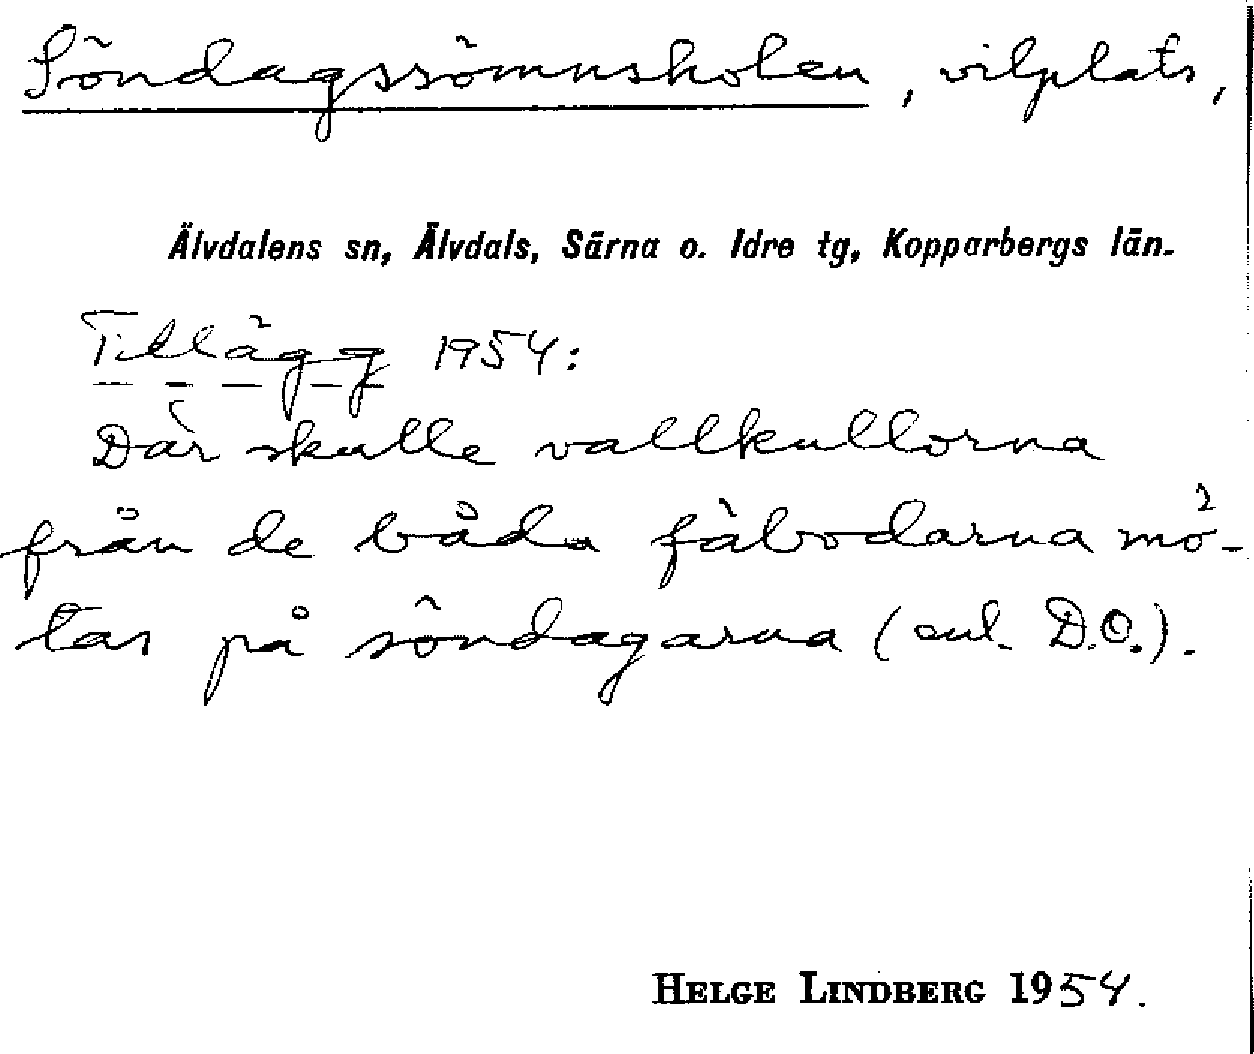 Söndagssömnskolen, vilplats,
Älvdalens sn, Älvdals, Särna o. Idre tg, Kopparbergs län.
Tillägg 1954:
Där skulle vallkullorna
från de båda fäbodarna mö-
tas på söndagarna (enl. D.O.).
HELGE LINDBERG 1954.